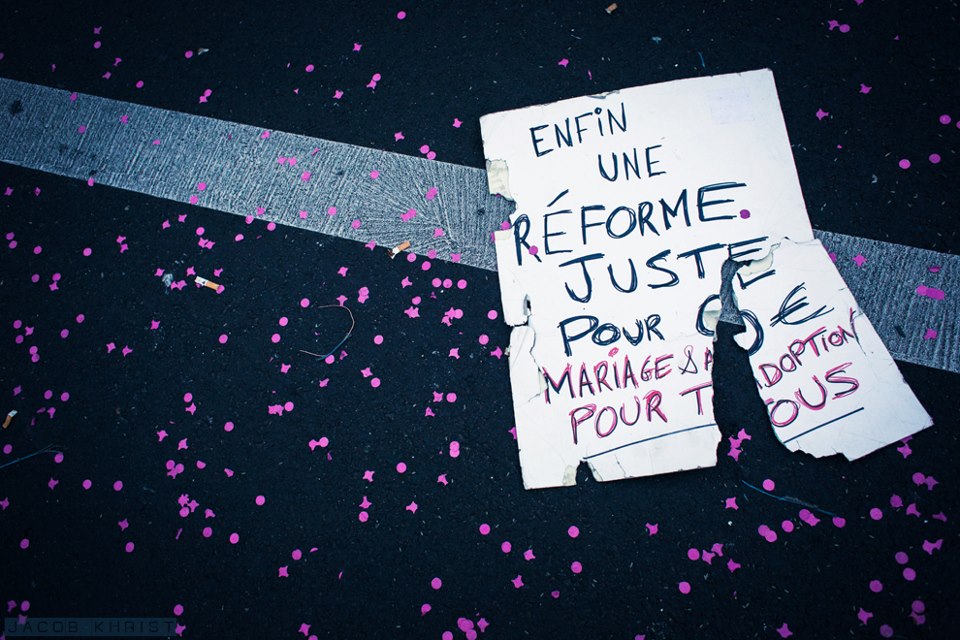 ENFIN
UNE
RÉFORME
JUSTE
POUR 0€
MARIAGE & ADOPTION
POUR TOUS
JACOB KHRIST